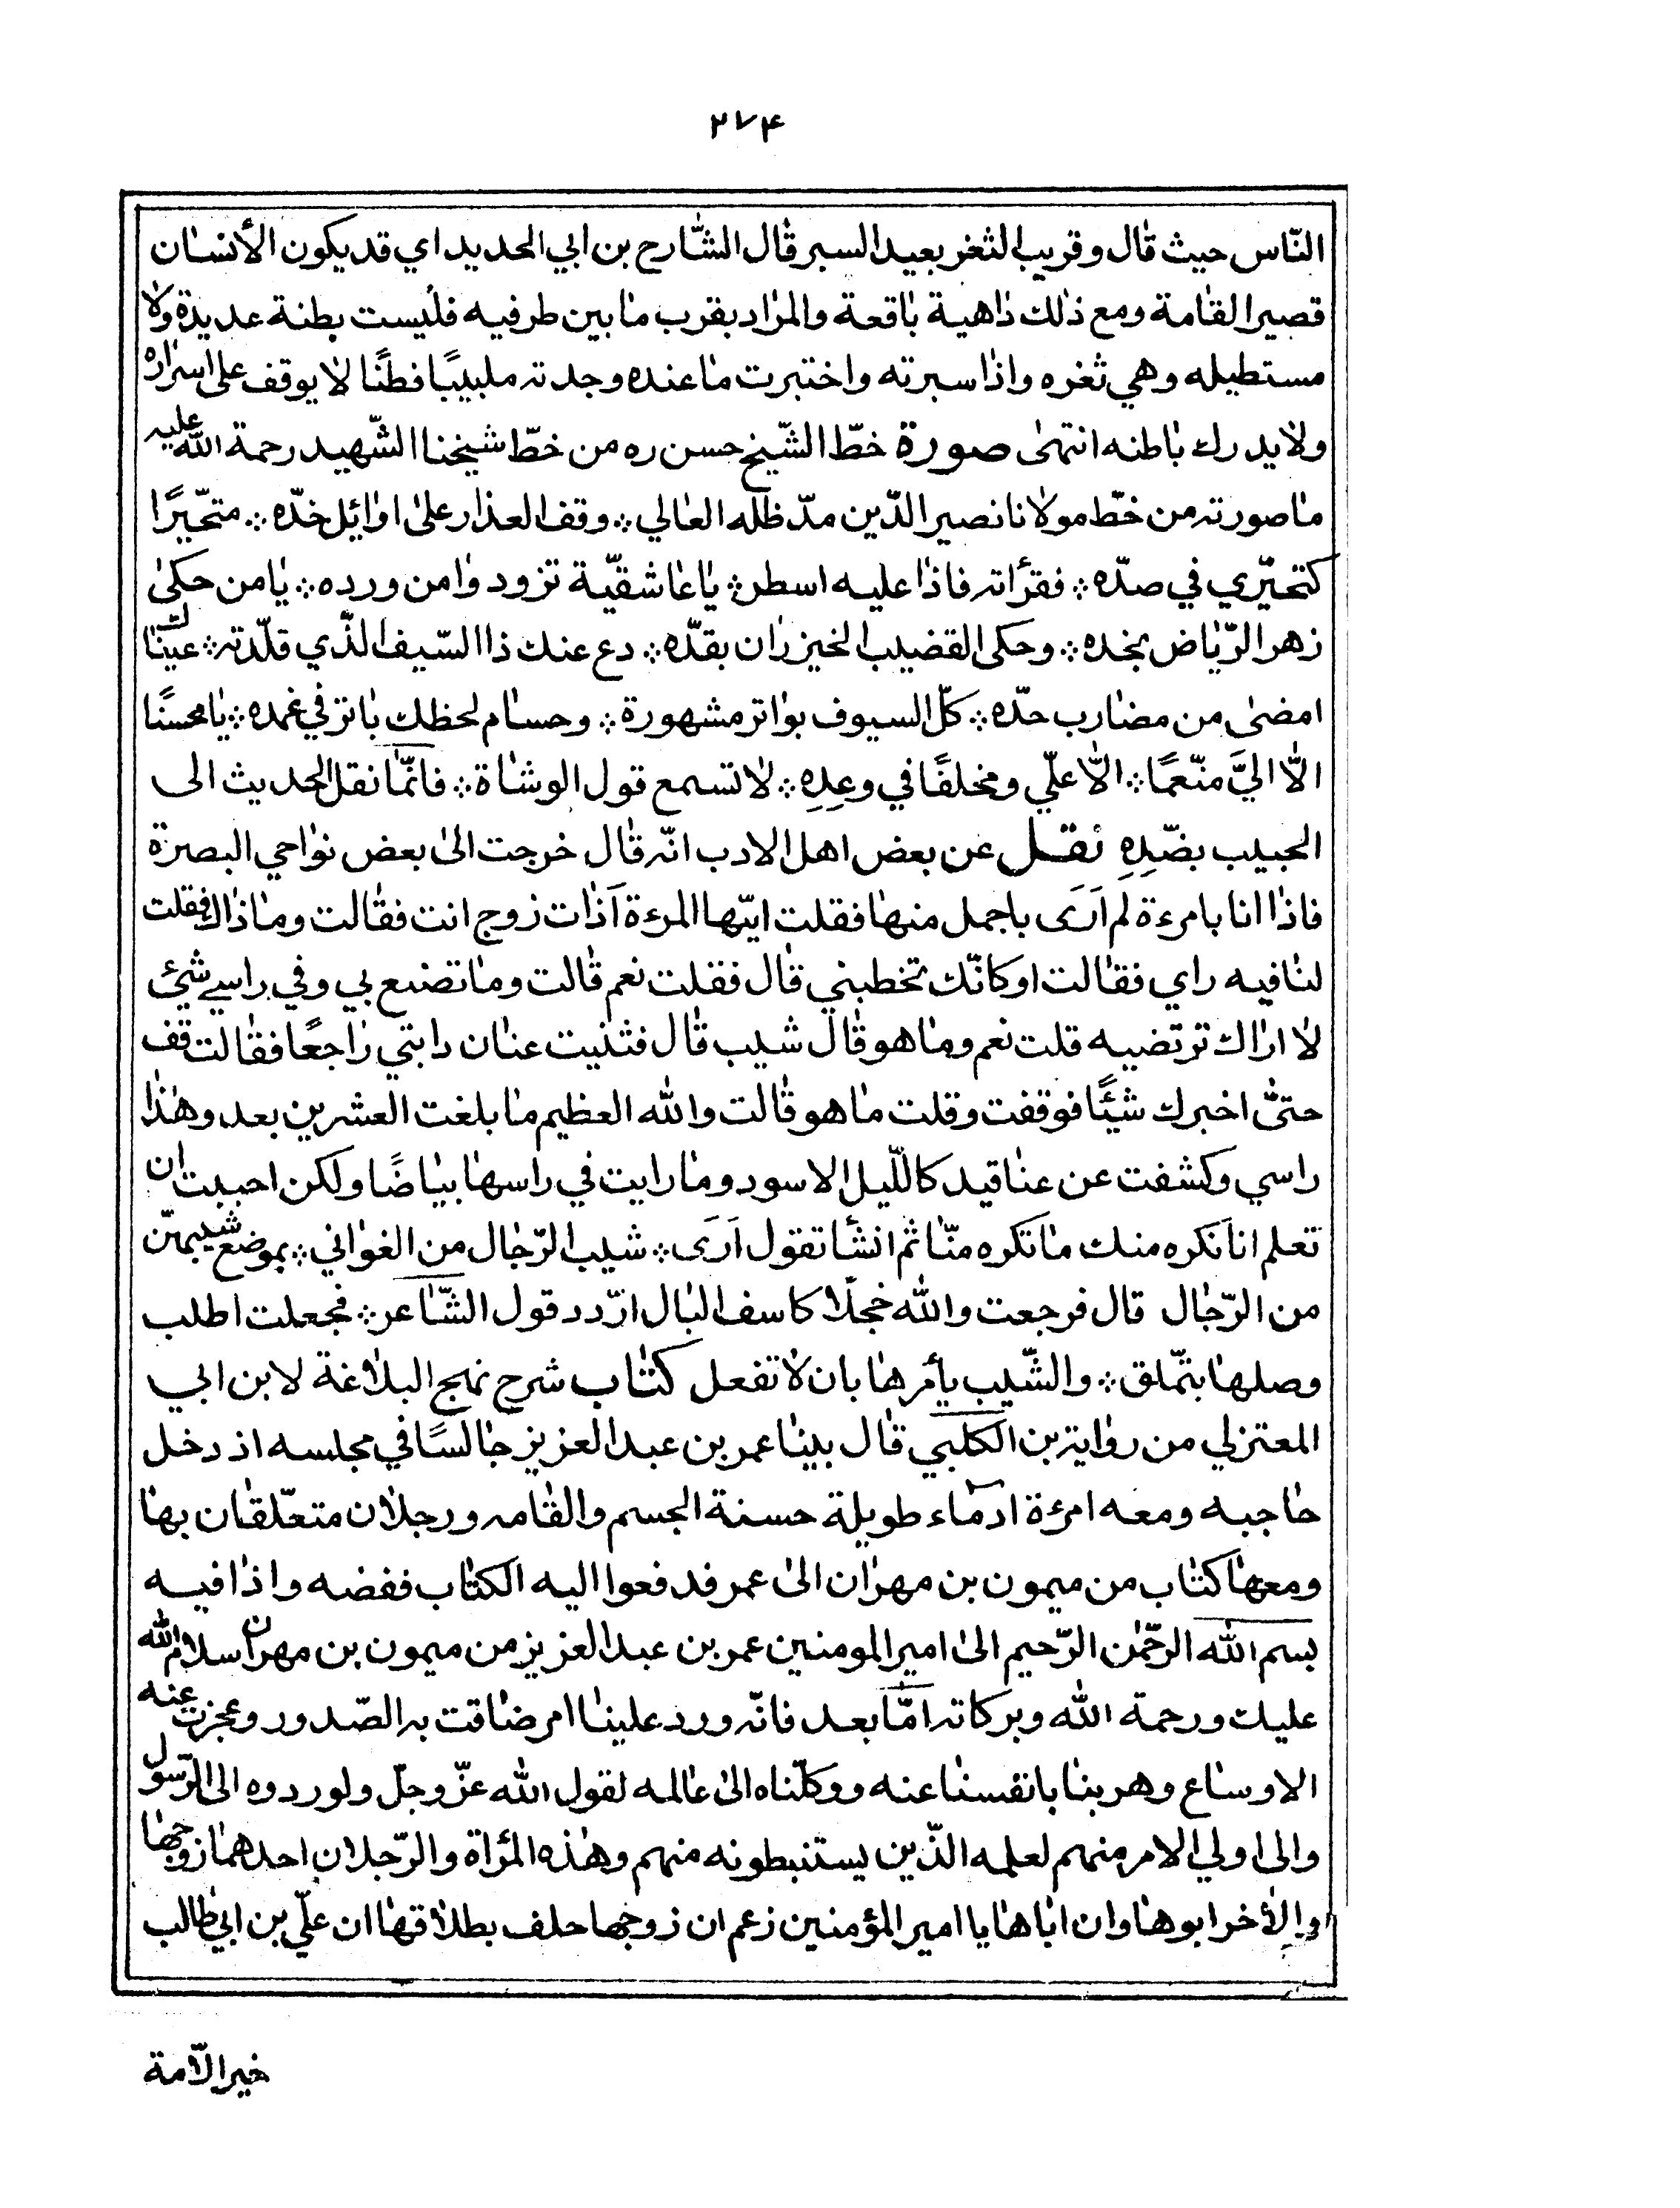 ٢٧۴
النّاس حيث قال وقريب الثغر بعيد السبر قال الشّارح بن ابي الحديد اي قد يكون الأنسان
قصير القامة ومع ذلك داهية باقعة والمراد بقرب ما بين طرفيه فليست بطنة عديدة ولا
مستطيله وهي ثغره واذا سبرته واختبرت ما عنده وجدته ملبيبًا فطنًا لا يوقف على اسراره
ولا يدرك باطنه انتهى صورة خطّ الشّيخ حسن ره من خطّ شيخنا الشّهيد رحمة الله عليه
ما صورته من خطّ مولانا نصير الدّين مدّ ظله العالي ؞ وقف العذار على اوائل خدّه ؞ متحّيرًا
كتحيّري في صدّه ؞ فقرأته فاذا عليه اسطر ؞ يا عاشقيّة تزود وامن ورده ؞ يا من حكى
زهر الرّياض بخده ؞ وحكى القضيب الخيزران بقدّه ؞ دع عنك ذا السّيف الّذي قلّدته ؞ عيناك
امضى من مضارب حدّه ؞ كلّ السيوف بواتر مشهورة ؞ وحسام لحظك باتر في غمده ؞ يا محسنًا
الّا اليَّ منّعمًا ؞ الّا علّي ومخلفًا في وعِدِهِ ؞ لا تسمع قول الوشاة ؞ فانّما نقل الحديث الى
الحبيب بضّدِهِ نقل عن بعض اهل الادب انّه قال خرجت الى بعض نواحي البصرة
فاذا انا بامرءة لم اَرَى باجمل منها فقلت ايتّها المرءة آذات زوج انت فقالت وما ذاك فقلت
لنا فيه راي فقالت او كانّك تخطبني قال فقلت نعم قالت وما تصنع بي وفي راسي شئ
لا اراك ترتضيه قلت نعم وما هو قال شيب قال فثنيت عنان دابتي راجعًا فقالت قف
حتىّ اخبرك شئًًا فوقفت وقلت ما هو قالت والله العظيم ما بلغت العشرين بعد وهذا
راسي وكشفت عن عناقيد كاللّيل الاسود وما رايت في راسها بياضًا ولكن احببت ان
تعلم انا نكره منك ما تكره منّا ثم انشأ تقول اَرَى ؞ شيب الرّجال من الغواني ؞ بموضع شيبهنّ
من الرّجال قال فرجعت والله خجلًا كاسف البال ارّدد قول الشّاعر ؞ فجعلت اطلب
وصلها بتمّلق ؞ والشّيب يأمرها بان لا تفعل كتاب شرح نهج البلاغة لابن ابي
المعتزلي من رواية بن الكلبي قال بينا عمر بن عبد العزيز جالسًا في مجلسه اذ دخل
حاجبه ومعه امرءة ادماء طويلة حسنة الجسم والقامه ورجلان متعّلقان بها
ومعها كتاب من ميمون بن مهران الى عمر فدفعوا اليه الكتاب ففضه واذا فيه
بسم الله الرحّمن الرّحيم الى امير المومنين عمر بن عبد العزيز من ميمون بن مهران سلام الله
عليك ورحمة الله وبركاته امّا بعد فانّه ورد علينا امر ضاقت به الصّدور وعجزت عنه
الاوساع وهربنا بانفسنا عنه ووكلّناه الى عالمه لقول الله عزّ وجلّ ولو ردوه الى الرّسول
والى اولي الامر منهم لعلمه الّذين يستنبطونه منهم وهذه المرأة والرّجلان احدهما زوجها
والأخر ابوها وان اباها يا امير المؤمنين زعم ان زوجها حلف بطلاقها ان علّي بن ابي طالب
خير الاّمة